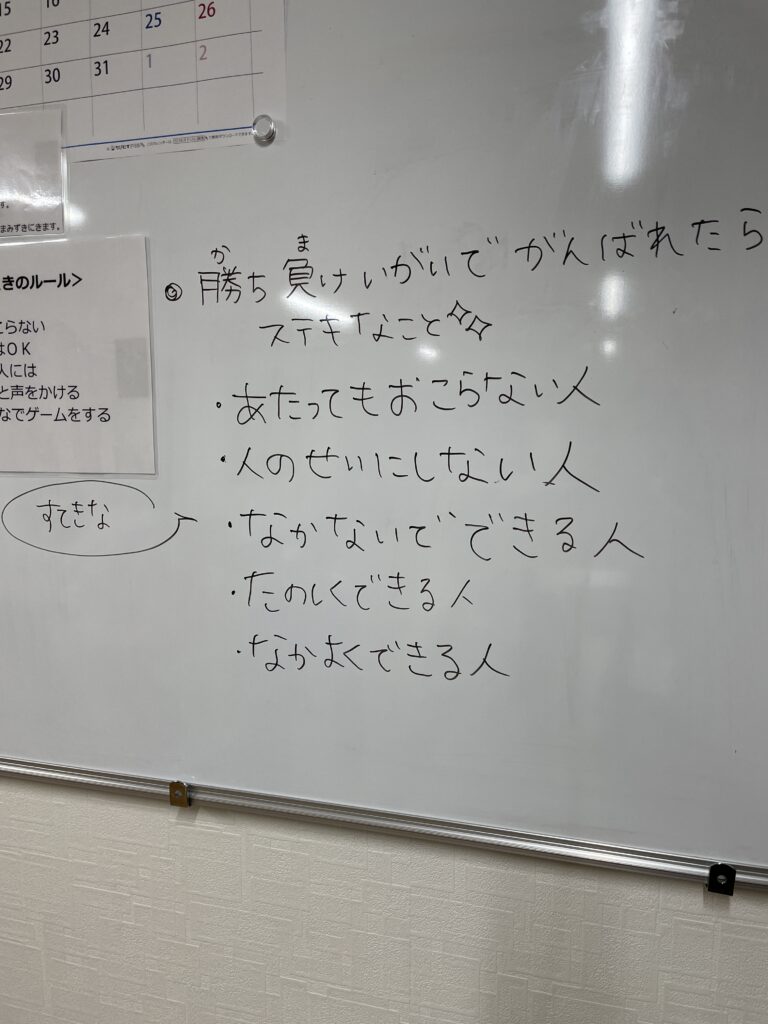 15 16
22 23 24 25 26
29 30 31 1 2
す。
まみずきにきます。
きのルール＞
こらない
はＯＫ
人には
と声をかける
なでゲームをする
か ま
◎ 勝ち負けいがいでがんばれたら
ステキなこと
・あたってもおこらない人
・人のせいにしない人
すてきな
・なかないでできる人
・たのしくできる人
・なかよくできる人